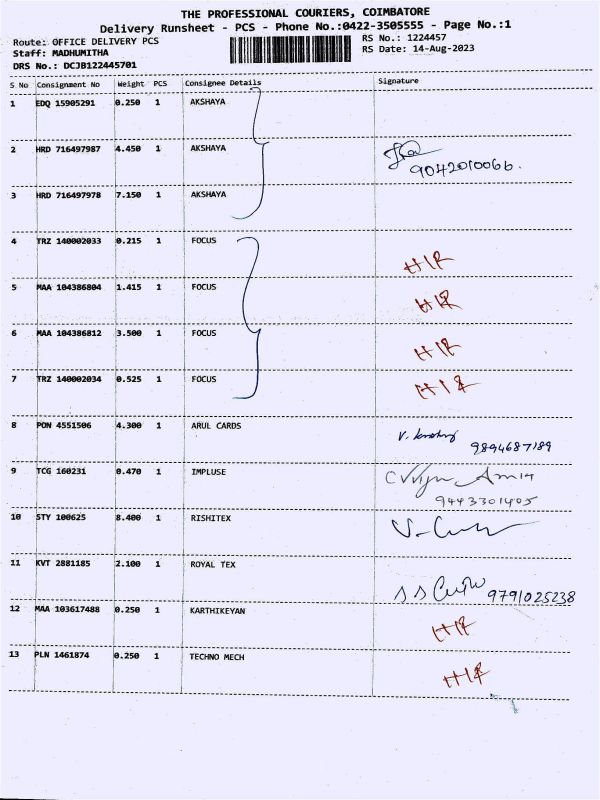 THE PROFESSIONAL COURIERS, COIMBATORE
Delivery Runsheet - PCS - Phone No.:0422-3505555 - Page No.:1
Route: OFFICE DELIVERY PCS
Staff: MADHUMITHA
DRS No.: DCJB122445701
RS No.: 1224457
RS Date: 14-Aug-2023
S No Consignment No Weight PCS Consignee Details Signature
1 EDQ 15905291 0.250 1 AKSHAYA
2 HRD 716497987 4.450 1 AKSHAYA
9042010066.
3 HRD 716497978 7.150 1 AKSHAYA
4 TRZ 140002033 0.215 1 FOCUS
HIR
5 MAA 104386804 1.415 1 FOCUS
HIR
6 MAA 104386812 3.500 1 FOCUS
HIR
7 TRZ 140002034 0.525 1 FOCUS
HIR
8 PON 4551506 4.300 1 ARUL CARDS
9894687189
9 TCG 160231 0.470 1 IMPLUSE
9443301405
10 STY 100625 8.400 1 RISHITEX
11 KVT 2881185 2.100 1 ROYAL TEX
9791025238
12 MAA 103617488 0.250 1 KARTHIKEYAN
HIR
13 PLN 1461874 0.250 1 TECHNO MECH
HIR